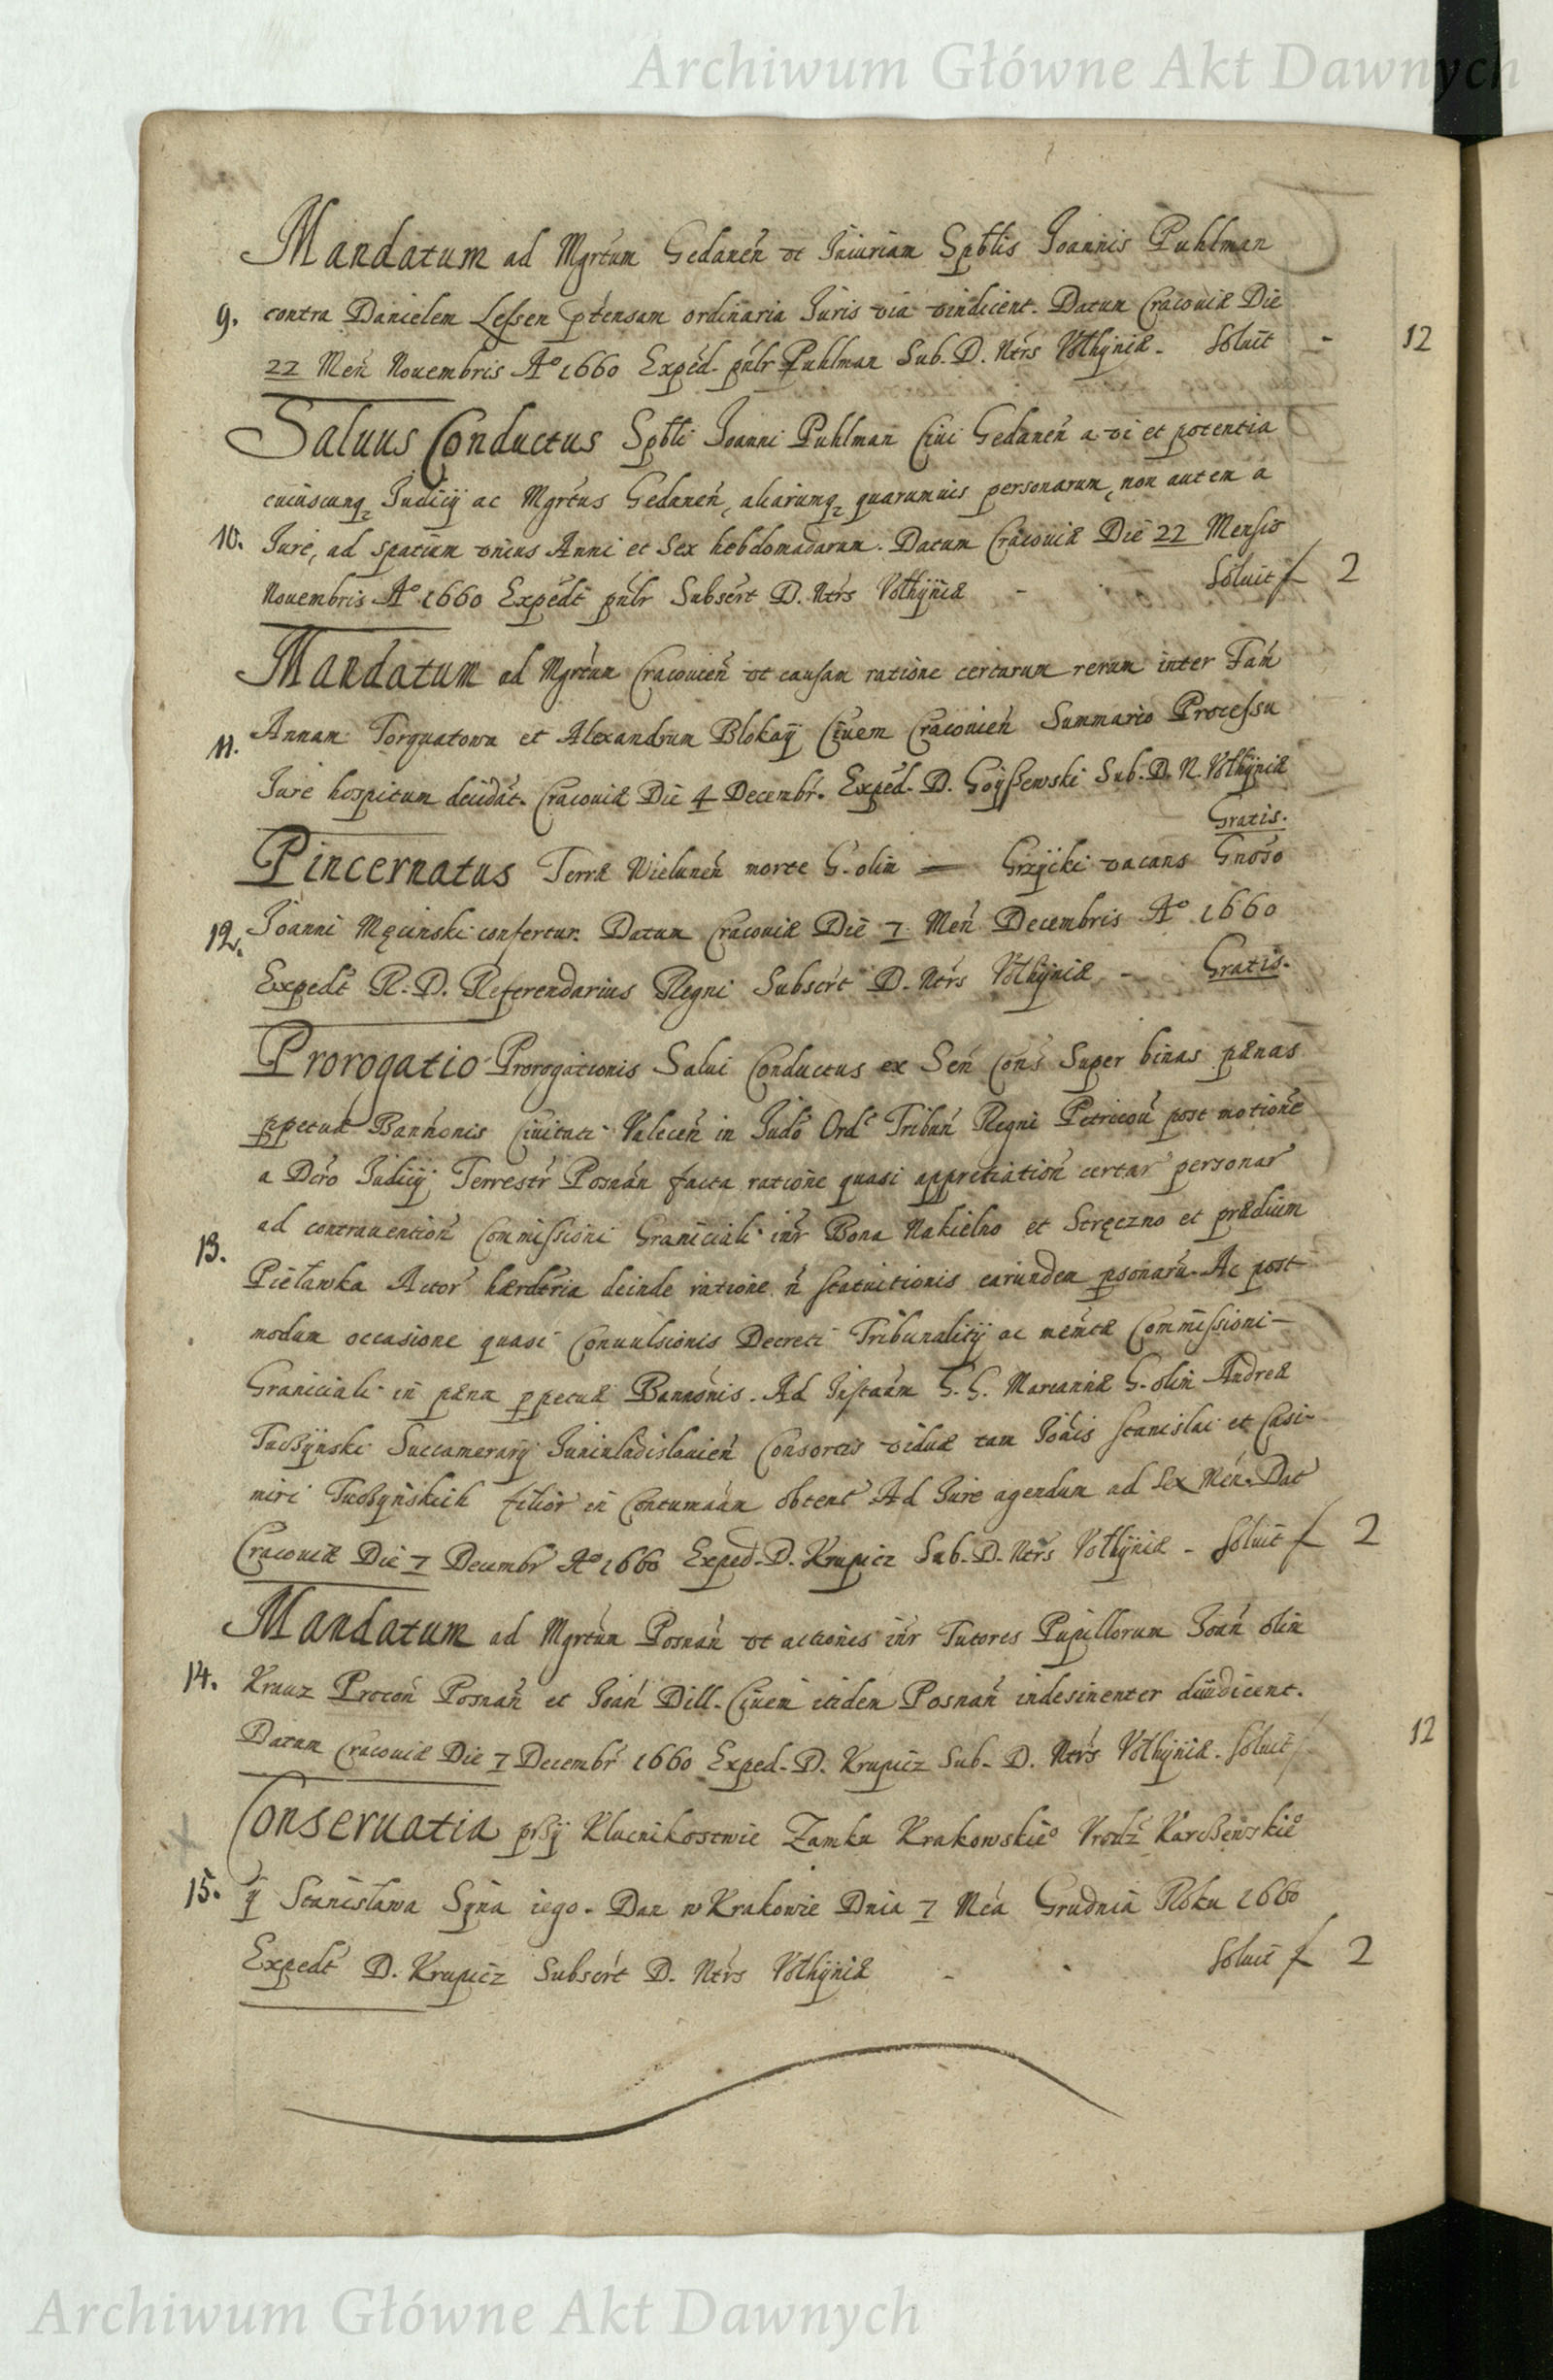 Archiwum Główne Akt Dawnych
Mandatum ad Mgrtum Gedanen̄ vt Iniuriam Spblis Joannis Puhlman
9. contra Danielem Lessen ptensam ordinaria Iuris via vindicent. Datum Cracouiæ Die
22 Men̄ Nouembris A° 1660 Exped. pnlr Puhlman Sub. D. Ntrs Volhyniæ. Soluit - 12
Saluus Conductus Spbli Joanni Puhlman Ciui Gedanen̄ a vi et potentia
cuiuscunq Iudicij ac Mgrtus Gedanen̄, aliarumq quarumuis personarum, non autem a
10. Iure, ad spatium vnius Anni et Sex hebdomadarum. Datum Cracouiæ Die 22 Mensis
Nouembris A° 1660 Expedt pnlr Subscrt D. Ntrs Volhyniæ - Soluit f 2
Mandatum ad Mgrtum Cracouien̄ vt causam ratione certarum rerum inter Fam̄
11. Annam Torquatowa et Alexandrum Blokaÿ Ciuem Cracouien̄ Summario Processu
Iure hospitum decidat. Cracouiæ Die 4 Decembr. Exped. D. Goyszewski Sub. D. N. Volhyniæ
Gratis.
Pincernatus Terræ Wielunen̄ morte G. olim — Grzycki vacans Gnoso
12. Joanni Męcinski confertur. Datum Cracouiæ Die 7 Men̄ Decembris A° 1660
Expedt R. D. Referendarius Regni Subscrt D. Ntrs Volhyniæ - Gratis.
Prorogatio Prorogationis Salui Conductus ex Sen̄ Cons Super binas pænas
ppetuæ Bannonis Ciuitati Valecen̄ in Judo Ord Tribun̄ Regni Petricou post motione
a Dcro Iudicij Terrestr Posnan̄ facta ratione quasi appretiation̄ certar personar
13. ad contrauention̄ Commissioni Graniciali intr Bona Nakielno et Stręczno et prædium
Pieławka Actor hærditria deinde ratione n̄ statuitionis earundem psonaru. Ac post
modum occasione quasi Conuulsionis Decreti Tribunalitij ac Commissioni
Graniciali in pæna ppetuæ Bannonis. Ad Instan̄m G. G. Mariannæ G. olim Andreæ
Tuczynski Succamerarij Iuniuladislauien̄ Consortis viduæ tam Joāis Stanislai et Casi-
miri Tuczynskich filior in Contumān obtent Ad Iure agendum ad Sex Men̄. Dat
Cracouiæ Die 7 Decembr A° 1660 Exped. D. Krupicz Sub. D. Ntrs Volhyniæ - Soluit f 2
Mandatum ad Mgrtum Posnan̄ vt actiones intr Tutores Pupillorum Joan̄ olim
14. Krauz Procon̄ Posnan̄ et Joan̄ Dill. Ciuem itidem Posnan̄ indesinenter diiudicent.
Datum Cracouiæ Die 7 Decembr 1660 Exped. D. Krupicz Sub. D. Ntrs Volhyniæ. Soluit 12
Conseruatia przÿ Klucnikostwie Zamku Krakowskie° Vrodz Karczewskie°
15. ÿ Stanisława Syna iego. Dan w Krakowie Dnia 7 Mca Grudnia Roku 1660
Expedt D. Krupicz Subscrt D. Ntrs Volhyniæ - Soluit f 2
Archiwum Główne Akt Dawnych